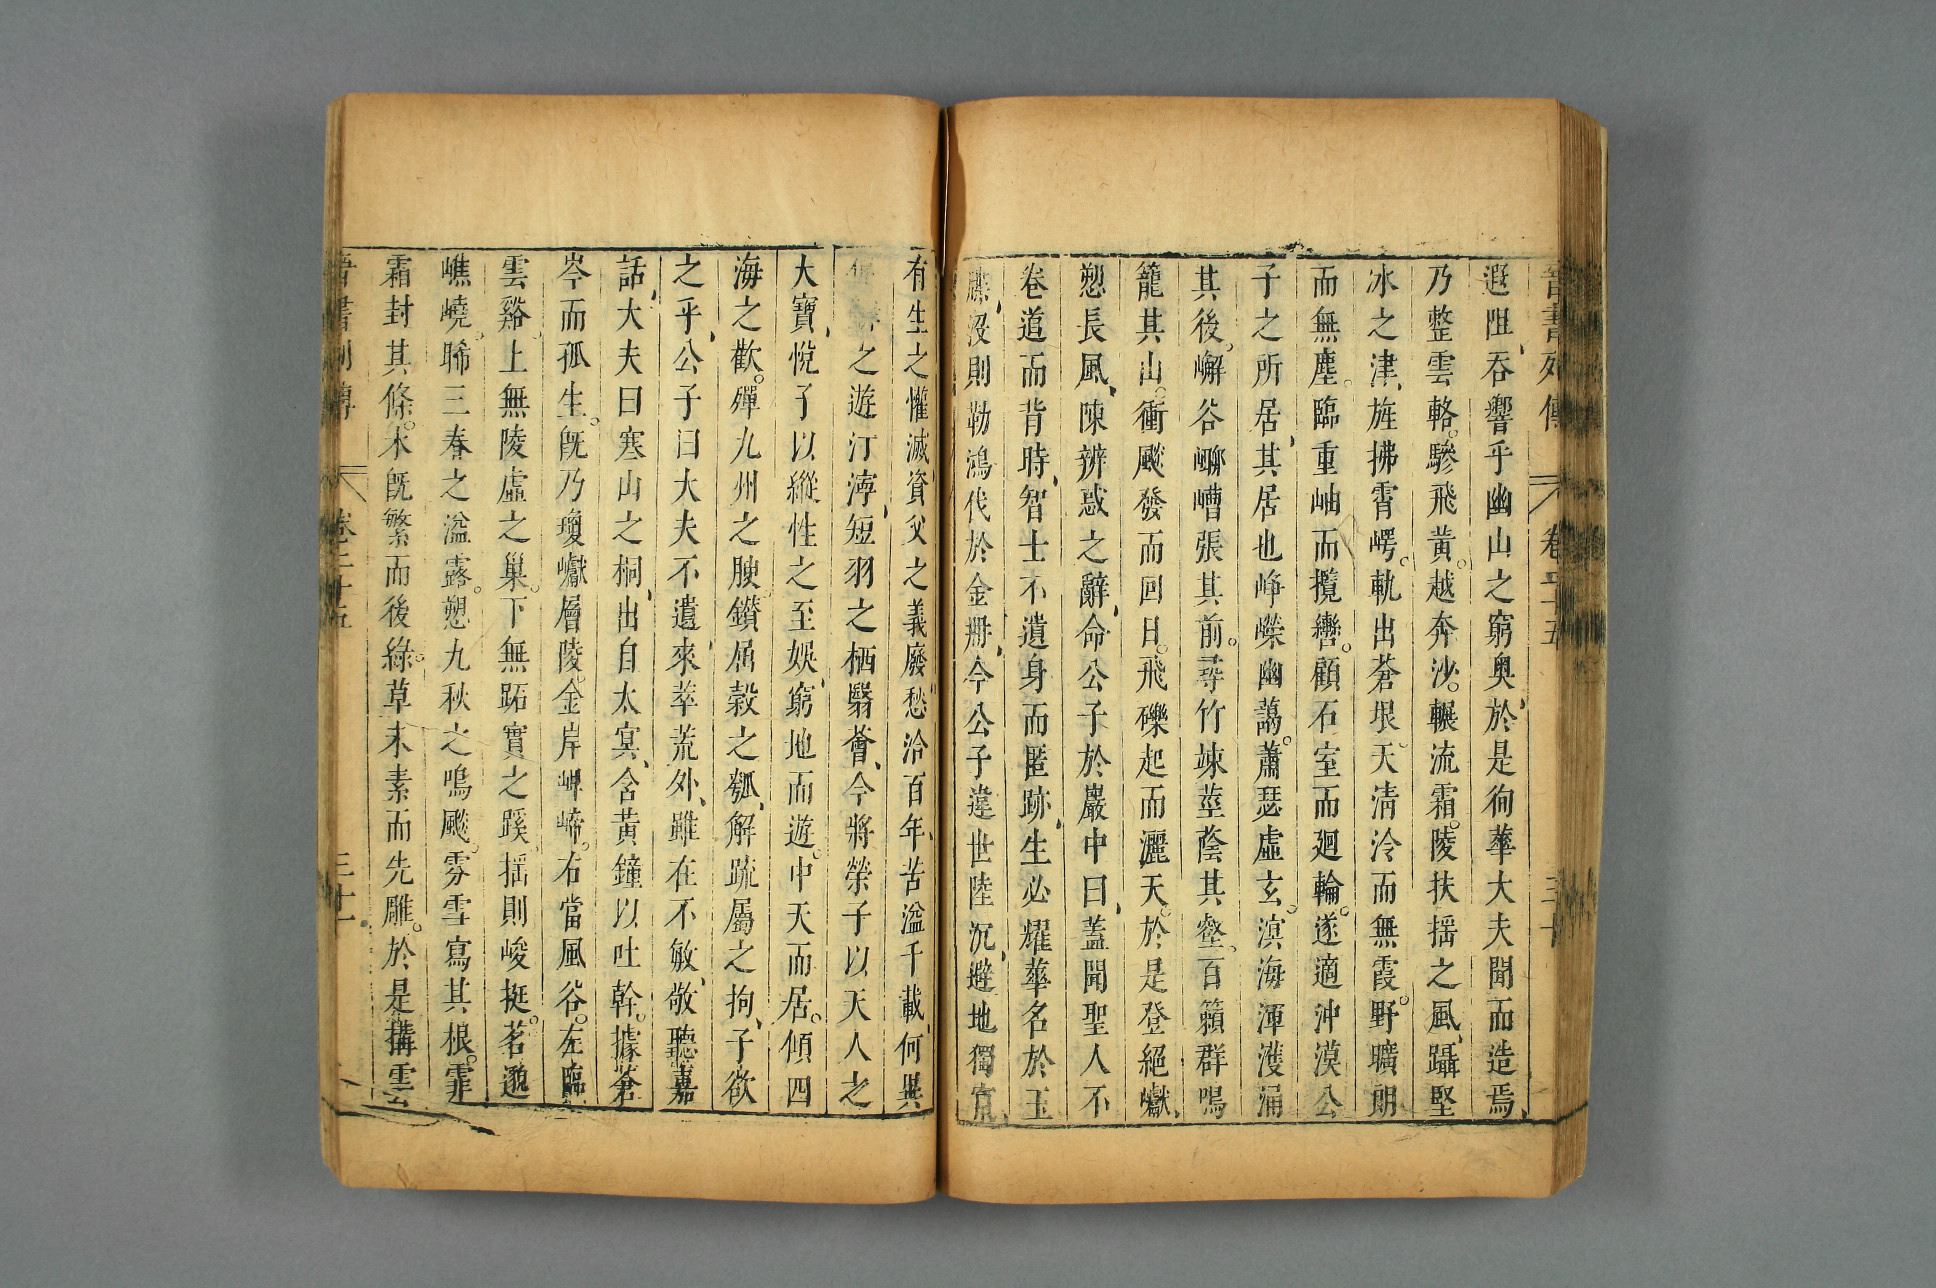 晉書列傳 卷二十五 三十
遐阻吞響乎幽山之窮奧於是徇華大夫聞而造焉
乃整雲輅驂飛黃越奔沙輾流霜陵扶揺之風躡堅
冰之津旌拂霄崿軌出蒼垠天清泠而無霞野曠朗
而無塵臨重岫而攬轡顧石室而廻輪遂適沖漠公
子之所居其居也崢嶸幽藹蕭瑟虛玄溟海渾濩涌
其後嶰谷嶆張其前尋竹竦莖蔭其壑百籟群鳴
籠其山衝飈發而回日飛礫起而灑天於是登絕巘
愬長風陳辨惑之辭命公子於巖中曰蓋聞聖人不
卷道而背時智士不遺身而匿跡生必耀華名於玉
牒沒則勒鴻伐於金冊今公子違世陸沉避地獨竄
有生之懽滅資父之義廢愁洽百年苦溢千載何異
之遊汀濘短羽之栖翳薈今將榮子以天人之
大寶悅子以縱性之至娛窮地而遊中天而居傾四
海之歡殫九州之腴鑚屈穀之瓠解疏屬之拘子欲
之乎公子曰大夫不遺來萃荒外雖在不敏敬聽嘉
話大夫曰寒山之桐出自太冥含黃鐘以吐幹據蒼
岑而孤生旣乃瓊巘層陵金岸崥崹右當風谷左臨
雲谿上無陵虛之巢下無跖實之蹊揺則峻挺茗邈
嶕嶢晞三春之溢露愬九秋之鳴飈雰雪寫其根霏
霜封其條木旣繁而後綠草未素而先雕於是構雲
晉書列傳 卷二十五 三十一